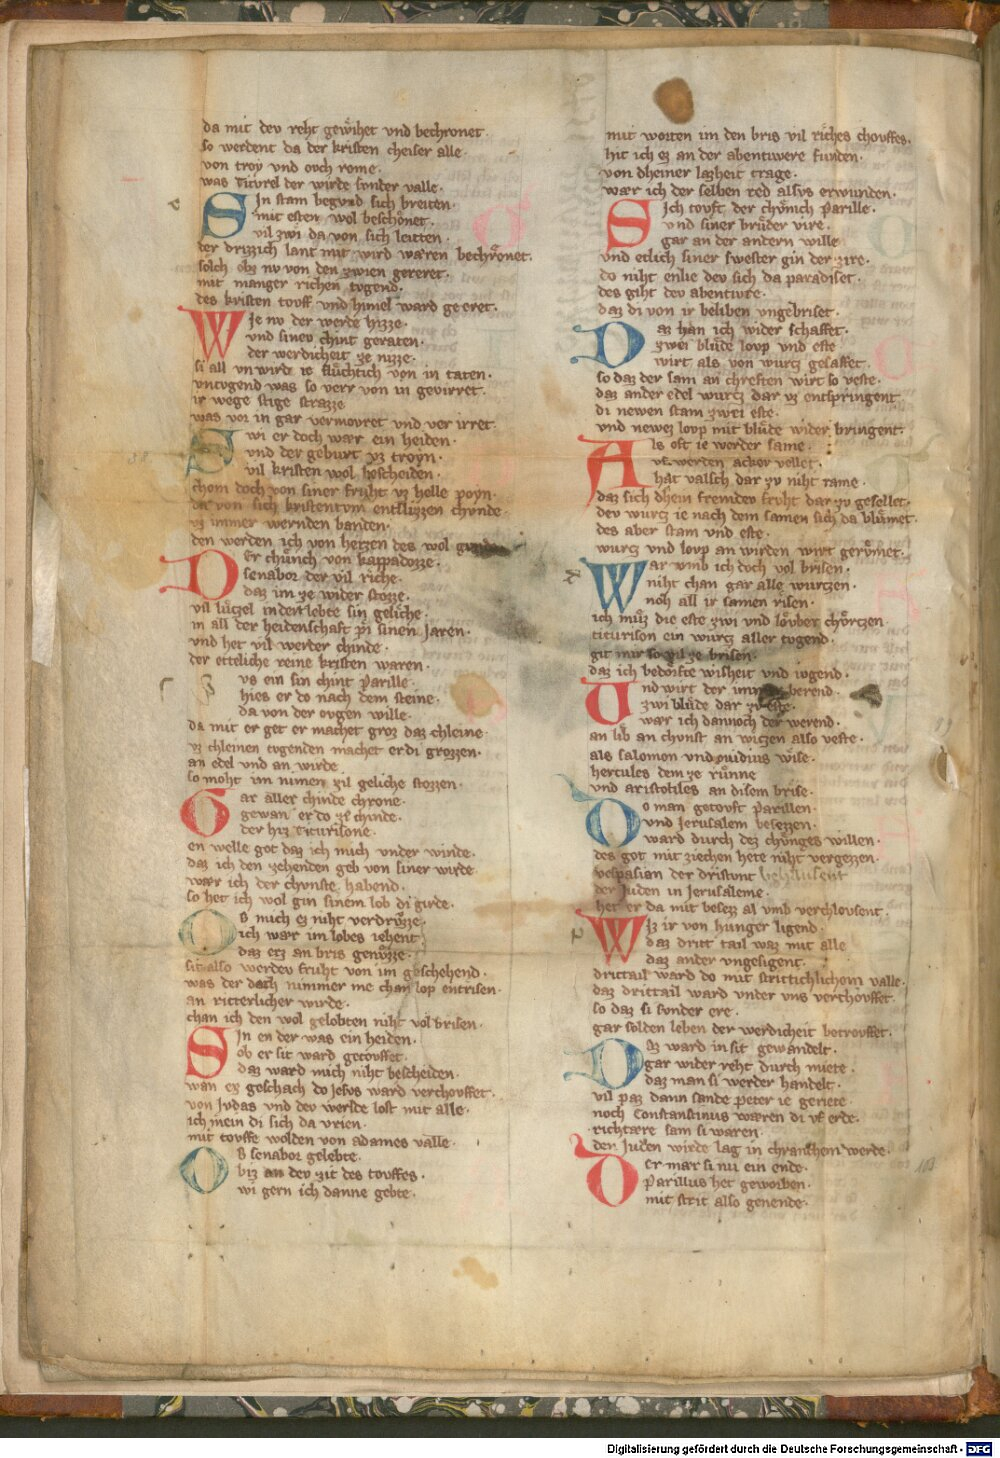 da mit dev reht gewihet vnd bechronet.
so werdent da der kristen cheiser alle.
von troy vnd ovch rome.
was Ticvrel der wirde sunder valle.
Sin stam begvnd sich breiten.
mit esten wol beschönet.
vil zwi da von sich leitten.
der drizzich lant mit wird waren bechrönet.
solch obz nv von den zwien gereret.
mit manger richen tvgend.
des kristen touff vnd himel ward geeret.
Wie nv der werde hizze.
vnd sinev chint geraten.
der werdicheit ze nizze.
si all vnwirde ie flüchtich von in taten.
vntvgend was so verr von in gevirret.
ir wege stige strazze
was vor in gar vermovret vnd ver irret.
Swi er doch wær ein heiden.
vnd der geburt vz troyn.
vil kristen wol bescheiden.
chom doch von siner fruht vz helle poyn.
die von sich kristentvm entslüzzen chvnde.
vz immer wernden banden.
den werden ich von hertzen des wol
Der chünch von kappadozze.
senabor der vil riche.
daz im ze wider stozze.
vil lützel inder lebte sin geliche.
in all der heidenschaft pi sinen jaren.
vnd het vil werder chinde.
der etteliche reine kristen waren.
vs ein sin chint Parille.
hies er do nach dem steine.
da von der ovgen wille.
da mit er get er machet groz daz chleine.
vz chleinen tvgenden machet er di grozzen.
an edel vnd an wirde
so moht im nimen zil geliche stozzen.
Gar aller chinde chrone.
gewan er do ze chinde.
der hiz Titurisone.
en welle got daz ich mich vnder winde.
daz ich den zehenden geb von siner wirde
wær ich der chvnste habend.
so het ich wol gin sinem lob di girde.
Ob mich ez niht verdrüzze.
ich wær im lobes iehent
daz erz an bris genüzze.
sit also werdev fruht von im geschehend.
was der doch nimmer me chan lop entrisen.
an ritterlicher wirde.
chan ich den wol gelobten niht vol brisen.
Sin en der was ein heiden.
ob er sit ward getouffet.
daz ward mich niht bescheiden.
wan ez geschach do Jesvs ward verchouffet.
von Jvdas vnd dev werlde lost mit alle.
ich mein di sich da vrien.
mit touffe wolden von adames valle.
Ob senabor gelebte.
biz an dev zit des touffes.
wi gern ich danne gebte.
mit worten im den bris vil riches chouffes.
hit ich ez an der abentiwere funden.
von dheiner lazheit trage.
wær ich der selben red alsvs erwunden.
Sich touft der chünich Parille.
vnd siner brüder vire.
gar an der andern wille
vnd etlich siner swester gin der zire.
do niht enlie dev sich da paradiset.
des giht dev abentivre.
daz di von ir beliben vngebriset.
Daz han ich wider schaffet.
zwei blüde loup vnd este
wirt als von wurtz gesaffet.
so daz der sam an chreften wirt so veste.
daz ander edel wurtz dar vz entspringent.
di newen stam zwei este.
vnd newez loup mit blüde wider bringent.
Als oft ie werder same.
vf werden acker vellet.
hat valsch dar zv niht rame.
daz sich dhein fremdev fruht dar zv gesellet.
dev wurtz ie nach dem samen sich da blümet.
des aber stam vnd este.
wurtz vnd loup an wirden wirt gerümet.
War vmb ich doch vol brisen.
niht chan gar alle wurtzen.
noh all ir samen risen.
ich müz die este zwi vnd louber chörtzen.
ticurison ein wurtz aller tvgend.
git mir so vil ze brisen.
daz ich bedörfte wisheit vnd iugend.
Vnd wirt der berend.
zwi blüde dar zv este.
wær ich dannoch der werend.
an lib an chvnst an witzen also veste.
als salomon vnd ouidius wise.
hercules dem ze rünne
vnd aristotiles an disem brise.
Do man getouft Parillen.
vnd Jerusalem besezzen.
ward durch dez chönges willen.
des got mit ziechen hete niht vergezzen.
vespasian der dristunt behausent
der Juden in Jerusaleme.
het er da mit besezz al vmb verchlousent.
Wiz ir von hunger ligend.
daz dritt tail waz mit alle
daz ander vngesigent.
drittail ward do mit strittichlichem valle.
daz drittail ward vnder vns verchouffet.
so daz si sonder ere.
gar solden leben der werdicheit berouffet.
Daz ward in sit gewandelt.
gar wider reht durch miete.
daz man si werder handelt.
vil paz dann sande peter ie geriete.
noch Constantinus wæren di vf erde.
richtære sam si waren.
den Juden wirde lag in chranchem werde.
Der mær si nu ein ende.
Parillus het geworben.
mit strit also genende.
103
Digitalisierung gefördert durch die Deutsche Forschungsgemeinschaft - DFG